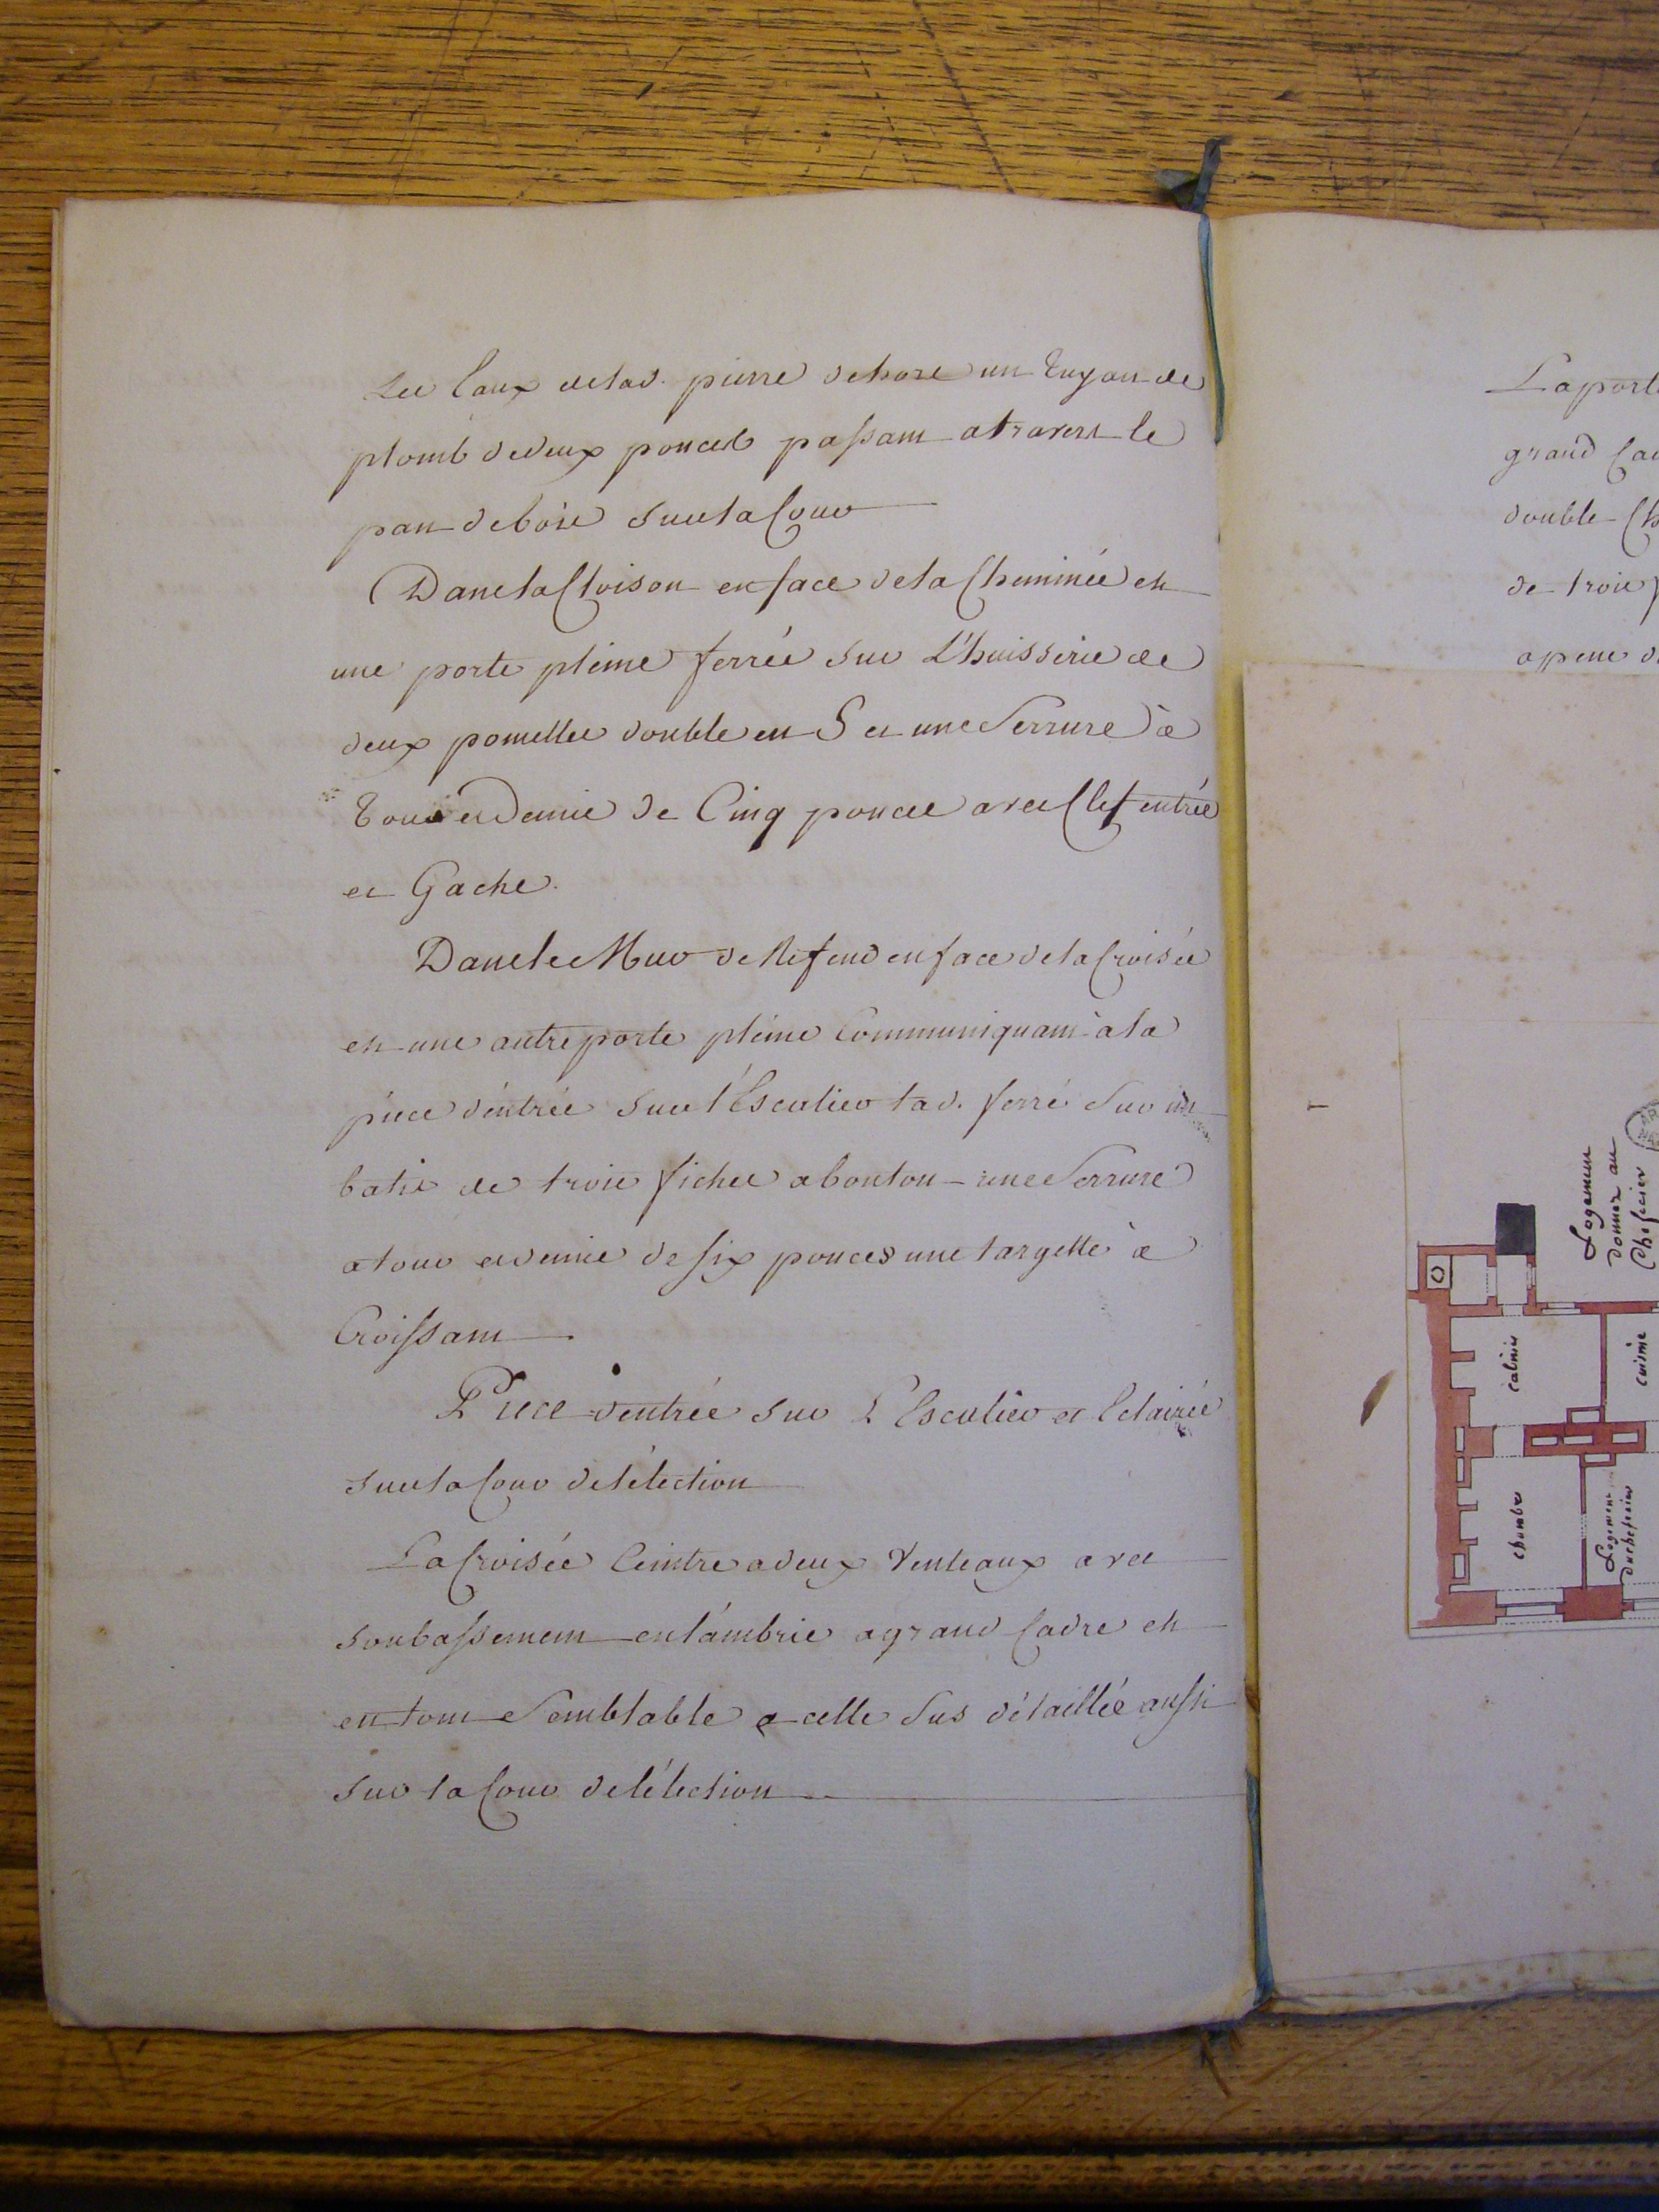 Les Eaux de lad. pierre dehors un Tuyau de
plomb de deux pouces passant atravers le
pan de bois sur la Cour
Dans la Cloison en face de la Cheminée est
une porte pleine ferrée sur L'huisserie de
deux pomelles double en S et une Serrure à
Tour et Demie de Cinq pouces avec Clef entrée
et Gache.
Dans le Mur de Refend en face de la Croisée
est une autre porte pleine Communiquant à la
piece d'entrée sur l'Escalier lad. ferré sur un
batis de trois fiches a bouton une Serrure
a tour et demie de six pouces une targette à
Croissant
Piece d'entrée sur L'Escalier et Eclairée
sur la Cour de l'élection
La Croisée Ceintre a deux Venteaux avec
soubassement en lambris a grand Cadre est
en tout Semblable a celle Sus détaillée aussi
sur la Cour de l'élection
La porte
grand Ca
double Ch
de trois p
a pene d
Logement
donner au
Cheffecier
cabinet
cuisine
chambre
Logement
du cheffecier